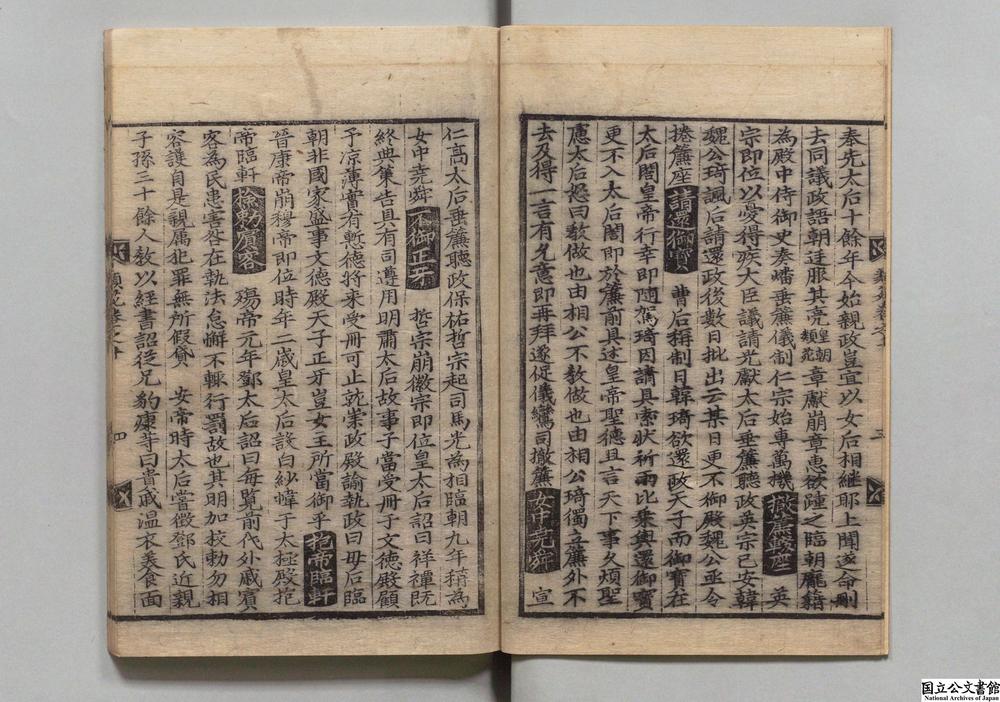 奉先太后十餘年今始親政豈宜以女后相繼耶上聞遂命刪
去同議政語朝廷服其亮皇朝類苑章獻崩章惠欲踵之臨朝龐籍
為殿中侍御史奏燔垂簾儀制仁宗始專萬機撤簾鑾座英
宗即位以憂得疾大臣議請光獻太后垂簾聽政英宗已安韓
魏公琦諷后請還政後數日批出云某日更不御殿魏公亟令
捲簾座請還御寶曹后稱制日韓琦欲還政天子而御寶在
太后閣皇帝行幸即隨駕琦因請具素狀祈雨比乘輿還御寶
更不入太后閣即於簾前具述皇帝聖德且言天下事久煩聖
慮太后怒曰敎做也由相公不敎做也由相公琦獨立簾外不
去及得一言有允意即再拜遂促儀鸞司撤簾女中堯舜宣
仁高太后垂簾聽政保祐哲宗起司馬光為相臨朝九年稱為
女中堯舜不御正牙哲宗崩徽宗即位皇太后詔曰祥禫既
終典策告具有司遵用明肅太后故事予當受冊于文德殿顧
予凉薄實有慙德將来受冊可止就崇政殿諭執政曰母后臨
朝非國家盛事文德殿天子正牙豈女主所當御乎抱帝臨軒
晉康帝崩穆帝即位時年二歲皇太后設白紗幃于太極殿抱
帝臨軒檢勅賓客殤帝元年鄧太后詔曰每覽前代外戚賓
客為民患害咎在執法怠懈不輒行罰故也其明加挍勅勿相
容護自是親属犯罪無所假貸 安帝時太后嘗徵鄧氏近親
子孫三十餘人敎以經書詔從兄豹康等曰貴戚溫衣美食面
三
四
国立公文書館
National Archives of Japan